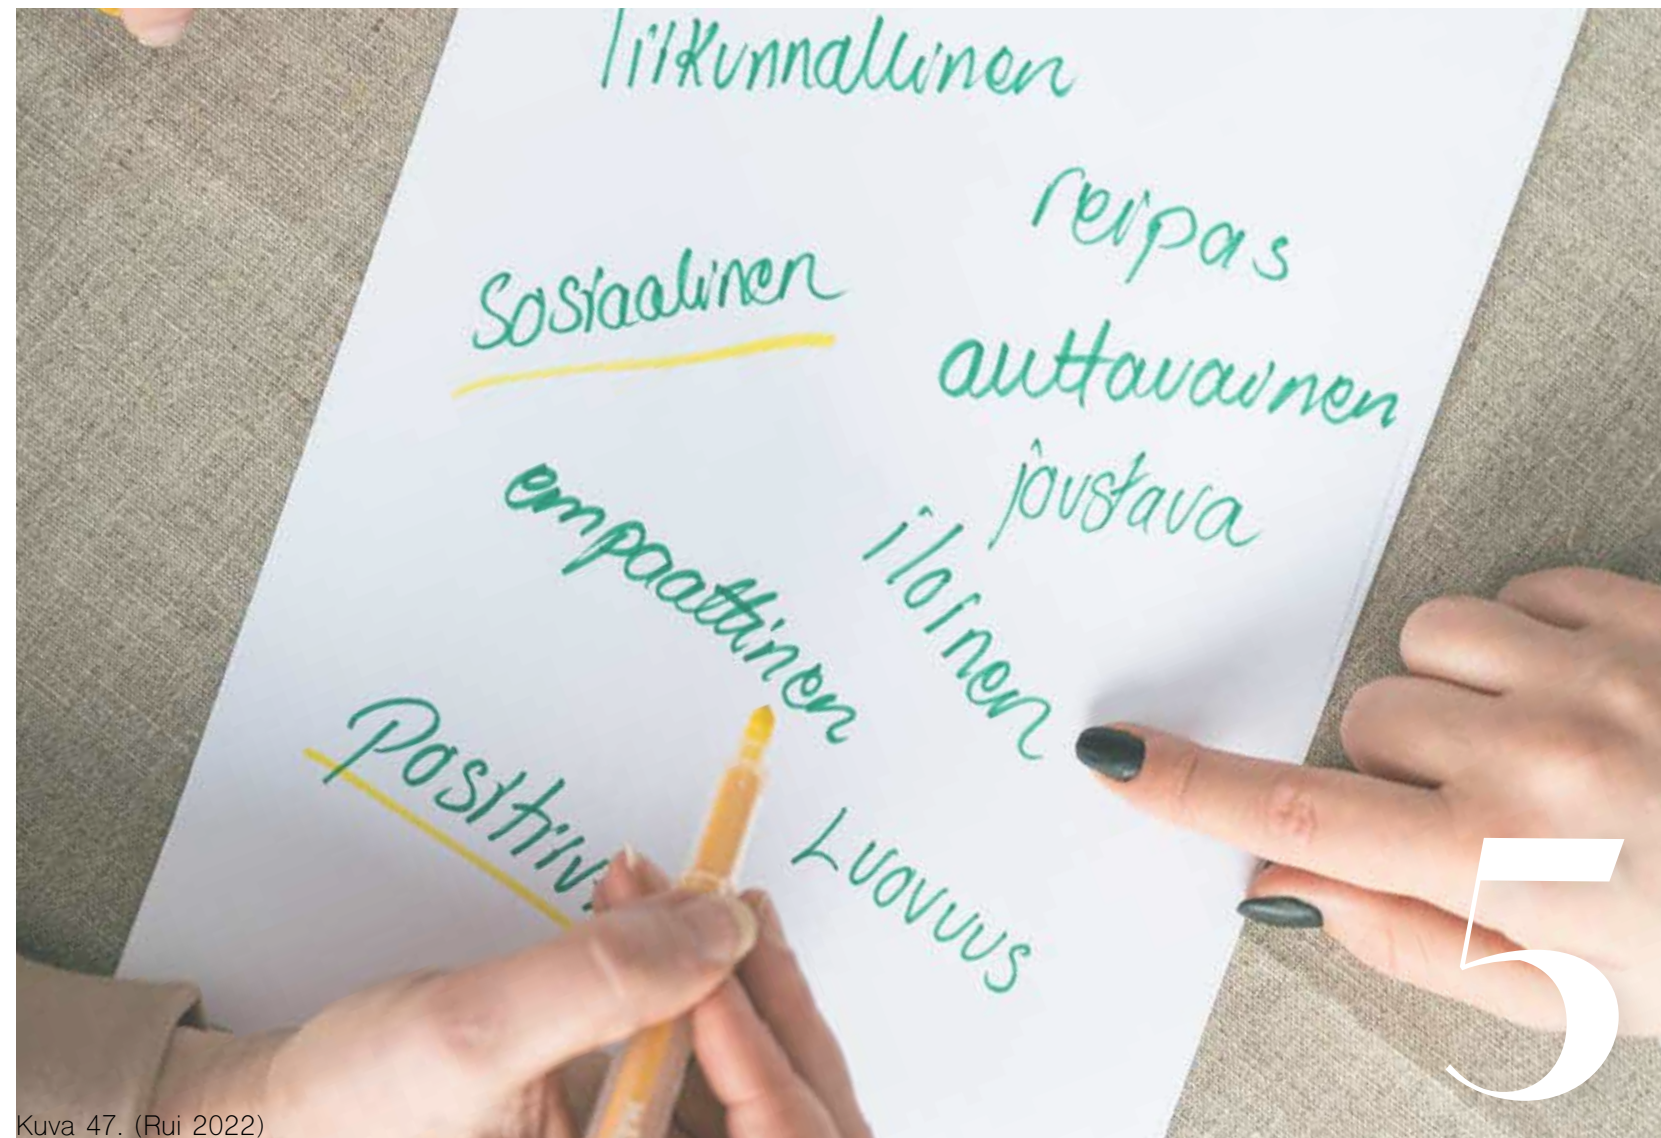 liikunnallinen
reipas
Sosiaalinen
auttavainen
joustava
empaattinen
iloinen
Luovuus
5
Kuva 47. (Rui 2022)